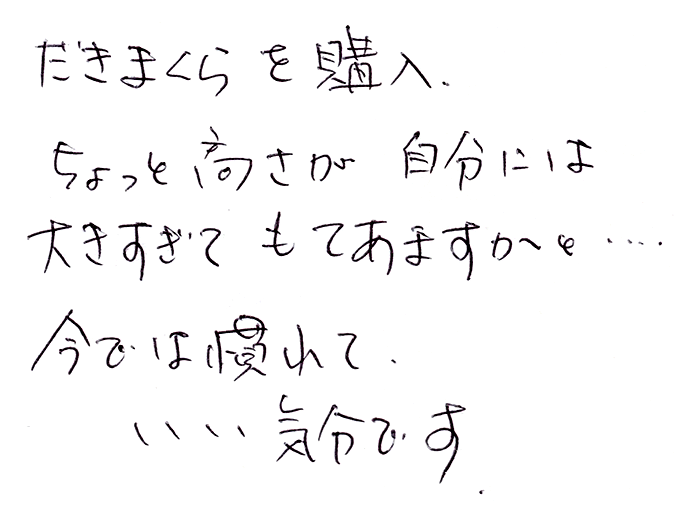 だきまくらを購入.
ちょっと高さが 自分には
大きすぎて もてあますかと‥‥
今では慣れて.
いい気分です.